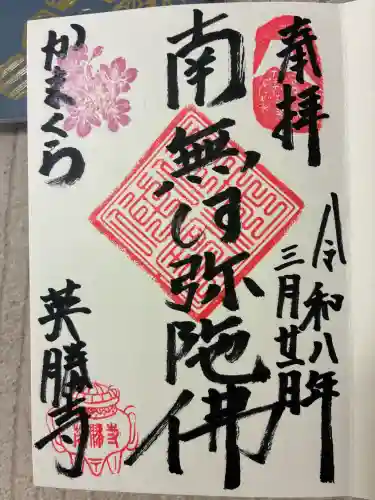 奉拝
令和八年
三月廿一日
南無阿弥陀佛
かまくら
英勝寺